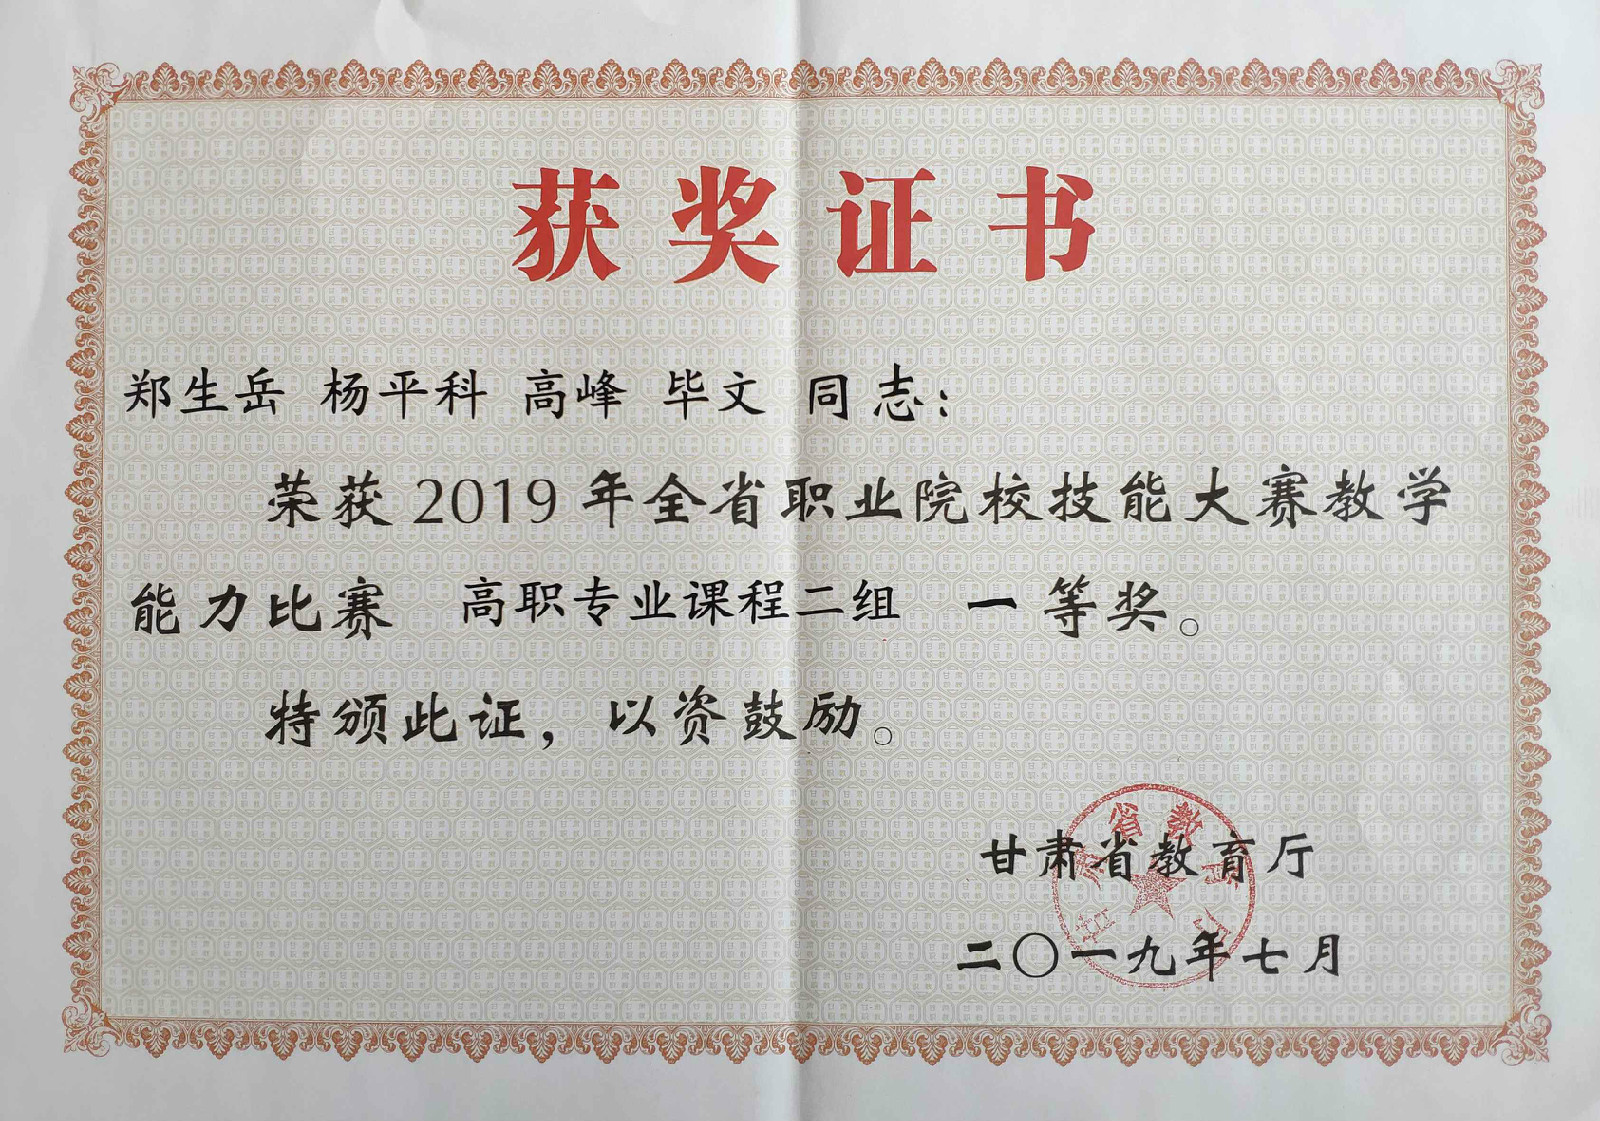 获奖证书
郑生岳 杨平科 高峰 毕文 同志：
荣获2019年全省职业院校技能大赛教学
能力比赛 高职专业课程二组 一等奖。
特颁此证，以资鼓励。
甘肃省教育厅
二〇一九年七月